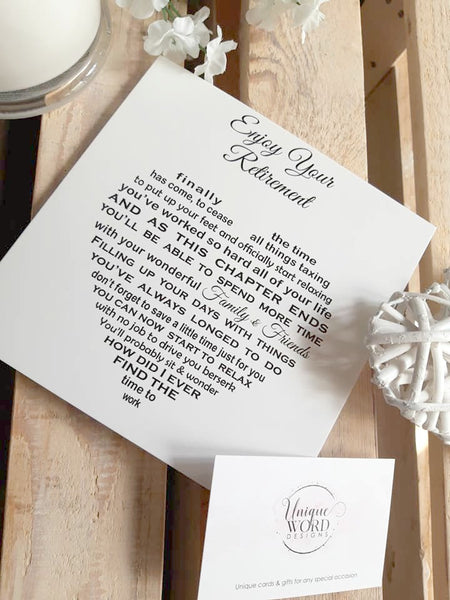 Enjoy Your
Retirement
finally the time
has come, to cease all things taxing
to put up your feet and officially start relaxing
you've worked so hard all of your life
AND AS THIS CHAPTER ENDS
YOU'LL BE ABLE TO SPEND MORE TIME
with your wonderful Family & Friends
FILLING UP YOUR DAYS WITH THINGS
YOU'VE ALWAYS LONGED TO DO
don't forget to save a little time just for you
YOU CAN NOW START TO RELAX
with no job to drive you berserk
You'll probably sit & wonder
HOW DID I EVER
FIND THE
time to
work
Unique
WORD
DESIGNS
Unique cards & gifts for any special occasion